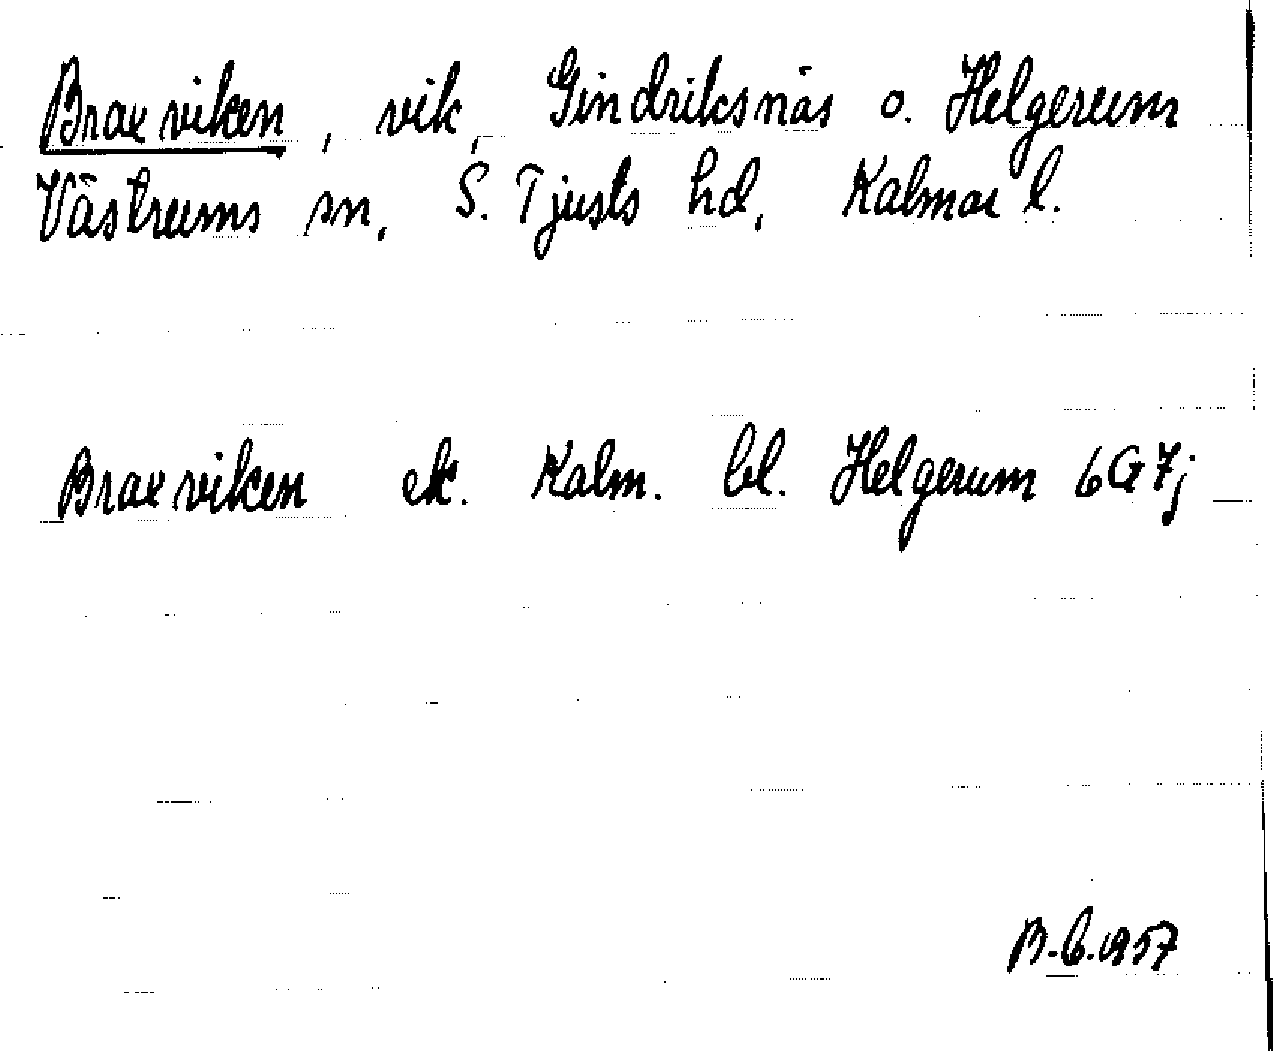 Braxviken, vik, Gindriksnäs o. Helgerum
Västrums sn, S. Tjusts hd, Kalmar l.
Braxviken ek. Kalm. bl. Helgerum 6G7j
B-b. 1957